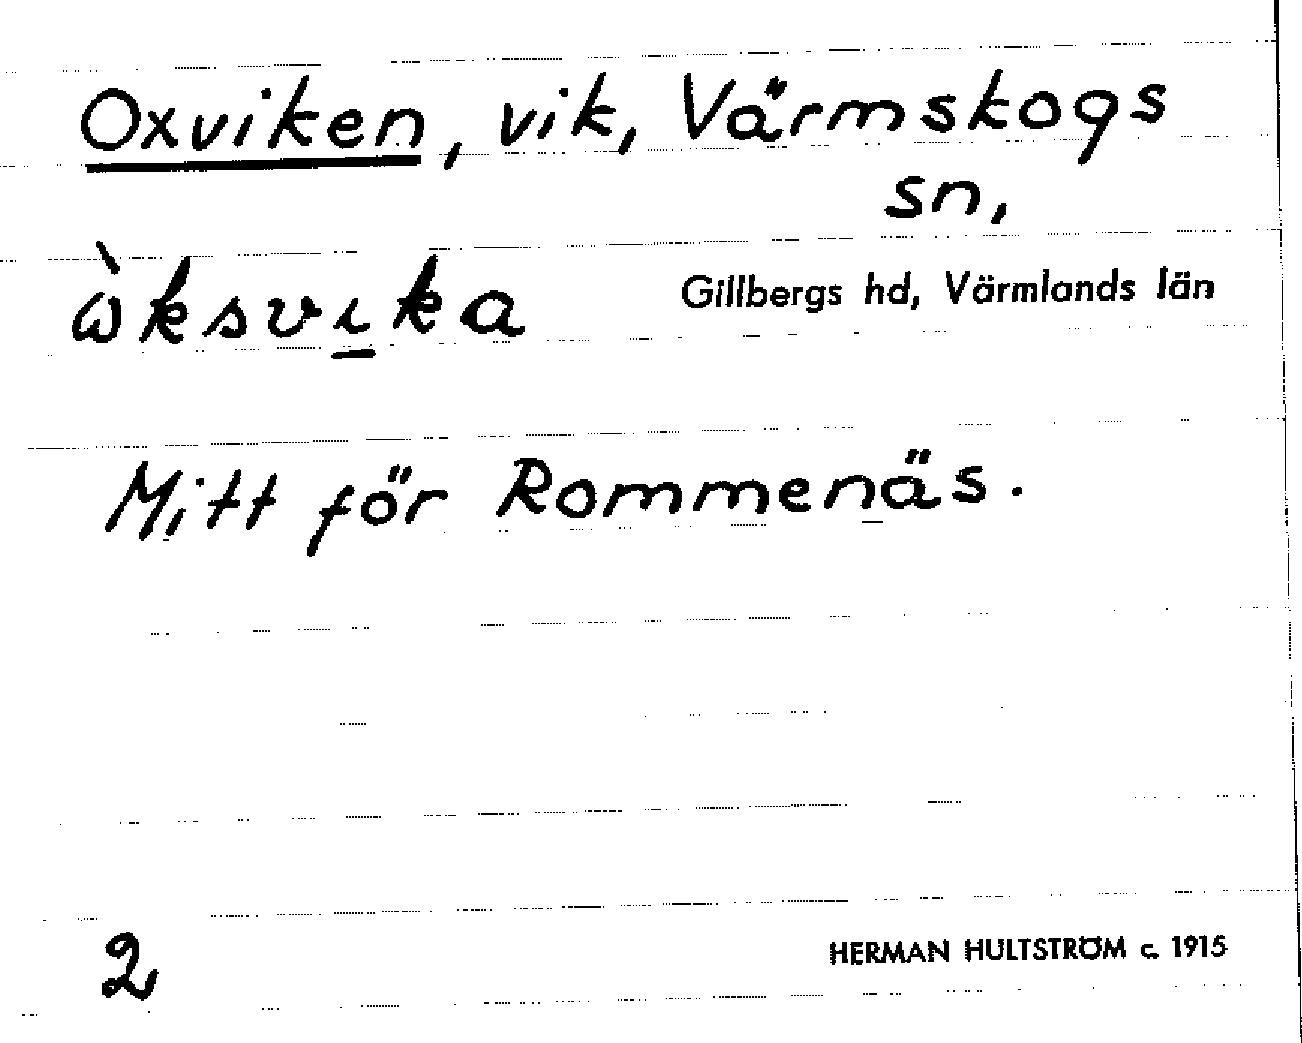 Oxviken, vik, Värmskogs
sn,
ὼksvi̱ka Gillbergs hd, Värmlands län
Mitt för Rommenäs.
2 HERMAN HULTSTRÖM c. 1915